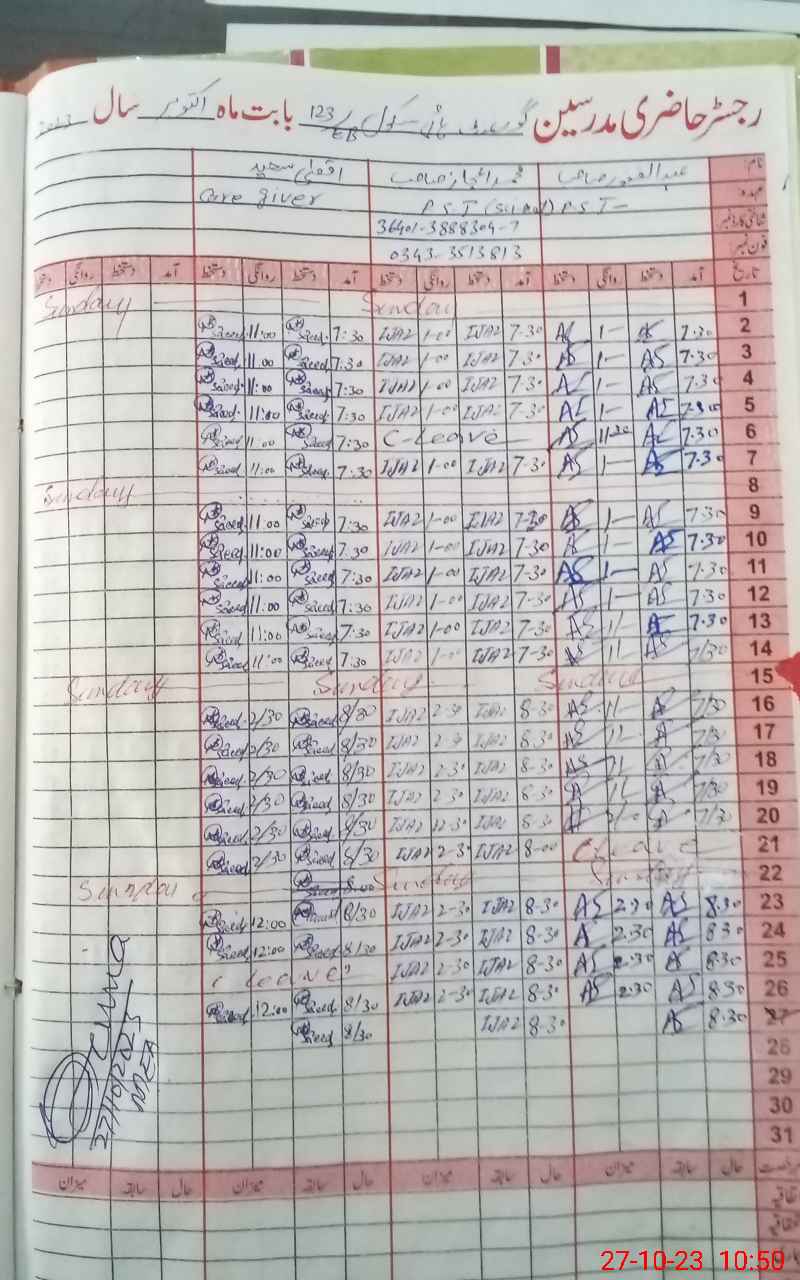 رجسٹر حاضری مدرسین گورنمنٹ ہائی سکول 123/EB بابت ماہ اکتوبر سال 2023
نام: عبدالغفور صاحب محمد اعجاز صاحب اقصٰی سعید
عہدہ P.S.T P.S.T Care giver
شناختی کارڈ نمبر 36401-3888304-7
فون نمبر 0343-3513813
تاریخ آمد دستخط روانگی دستخط آمد دستخط روانگی دستخط آمد دستخط روانگی دستخط روانگی
1 Sunday Sunday
2 7.30 AS 1— AS 7-30 IJAZ 1-00 IJAZ 7:30 Saeed 11:00 Saeed
3 7.30 AS 1— AS 7-30 IJAZ 1-00 IJAZ 7:30 Saeed 11:00 Saeed
4 7.30 AS 1— AS 7-30 IJAZ 1-00 IJAZ 7:30 Saeed 11:00 Saeed
5 7.30 AS 1— AS 7-30 IJAZ 1-00 IJAZ 7:30 Saeed 11:00 Saeed
6 7.30 AS 11-30 AS C-Leave 7:30 Saeed 11:00 Saeed
7 7.30 AS 1— AS 7-30 IJAZ 1-00 IJAZ 7:30 Saeed 11:00 Saeed
8 Sunday
9 7.30 AS 1— AS 7-30 IJAZ 1-00 IJAZ 7:30 Saeed 11:00 Saeed
10 7.30 AS 1— AS 7-30 IJAZ 1-00 IJAZ 7:30 Saeed 11:00 Saeed
11 7.30 AS 1— AS 7-30 IJAZ 1-00 IJAZ 7:30 Saeed 11:00 Saeed
12 7.30 AS 1— AS 7-30 IJAZ 1-00 IJAZ 7:30 Saeed 11:00 Saeed
13 7.30 AS 1/— AS 7-30 IJAZ 1-00 IJAZ 7:30 Saeed 11:00 Saeed
14 7/30 AS 1/— AS 7-30 IJAZ 1-00 IJAZ 7:30 Saeed 11:00 Saeed
15 Sunday Sunday Sunday
16 7/30 AS 1/— AS 8-30 IJAZ 2-30 IJAZ 8/30 Saeed 2/30 Saeed
17 7/30 A 1/— AS 8-30 IJAZ 2-30 IJAZ 8/30 Saeed 2/30 Saeed
18 7/30 A 1/— AS 8-30 IJAZ 2-30 IJAZ 8/30 Saeed 2/30 Saeed
19 7/30 A 1/— A 8-30 IJAZ 2-30 IJAZ 8/30 Saeed 2/30 Saeed
20 7/30 A A 8-30 IJAZ 12-30 IJAZ 8/30 Saeed 2/30 Saeed
21 C Leave 8-00 IJAZ 2-30 IJAZ 8/30 Saeed 2/30 Saeed
22 Sunday Sunday Sunday
23 8.30 AS 2.30 AS 8-30 IJAZ 2-30 IJAZ 8/30 12:00 Saeed
24 8.30 AS 2.30 A 8-30 IJAZ 2-30 IJAZ 8/30 Saeed 12:00 Saeed
25 8.30 A 2.30 AS 8-30 IJAZ 2-30 IJAZ C Leave
26 8.30 AS 2.30 AS 8-30 IJAZ 2-30 IJAZ 8/30 Saeed 12:00 Saeed
27 8.30 AS 8-30 IJAZ 8/30 Saeed
28
29
30
31
27/10/2023
MEA
حال سابقہ میزان حال سابقہ میزان حال سابقہ میزان
27-10-23 10:50